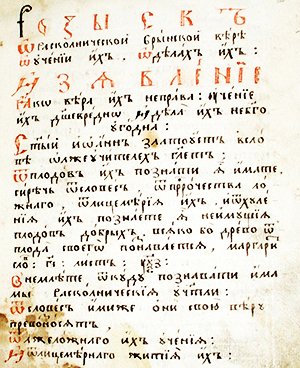 РОЗЫСКЪ
Ѿ раскольнической Брынской вѣрѣ
Ѿ ученїи ихъ, ѿ дѣлахъ ихъ:
ИЗЯВЛЕНЇЕ
Яко вѣра ихъ неправа: ученїе
ихъ душевредно, и дѣла ихъ небг҃о
угодна:
Ст҃ый Їѡаннъ златоустъ всло
вѣ ѡ лжеучителехъ гл҃етъ:
Ѿ плодовъ ихъ познати я имате,
сирѣчь ѿ словесъ, ѿ пророчества ло
жнаго, ѿ лицемѣрїя ихъ, ѿ хуле
нїя, ихъ познаете, я неимущїя
плодовъ добрыхъ, всяко бо древо ѿ
плода своего познавается, маргари
листъ:
Внемлѣте ѿкуду познавати има
мы раскольническїя учт҃ели:
Ѿ словесъ имиже они свою вѣру
превозносятъ,
Ѿ лжеложнаго ихъ ученїя:
И ѿ лицемѣрнаго житїя ихъ: